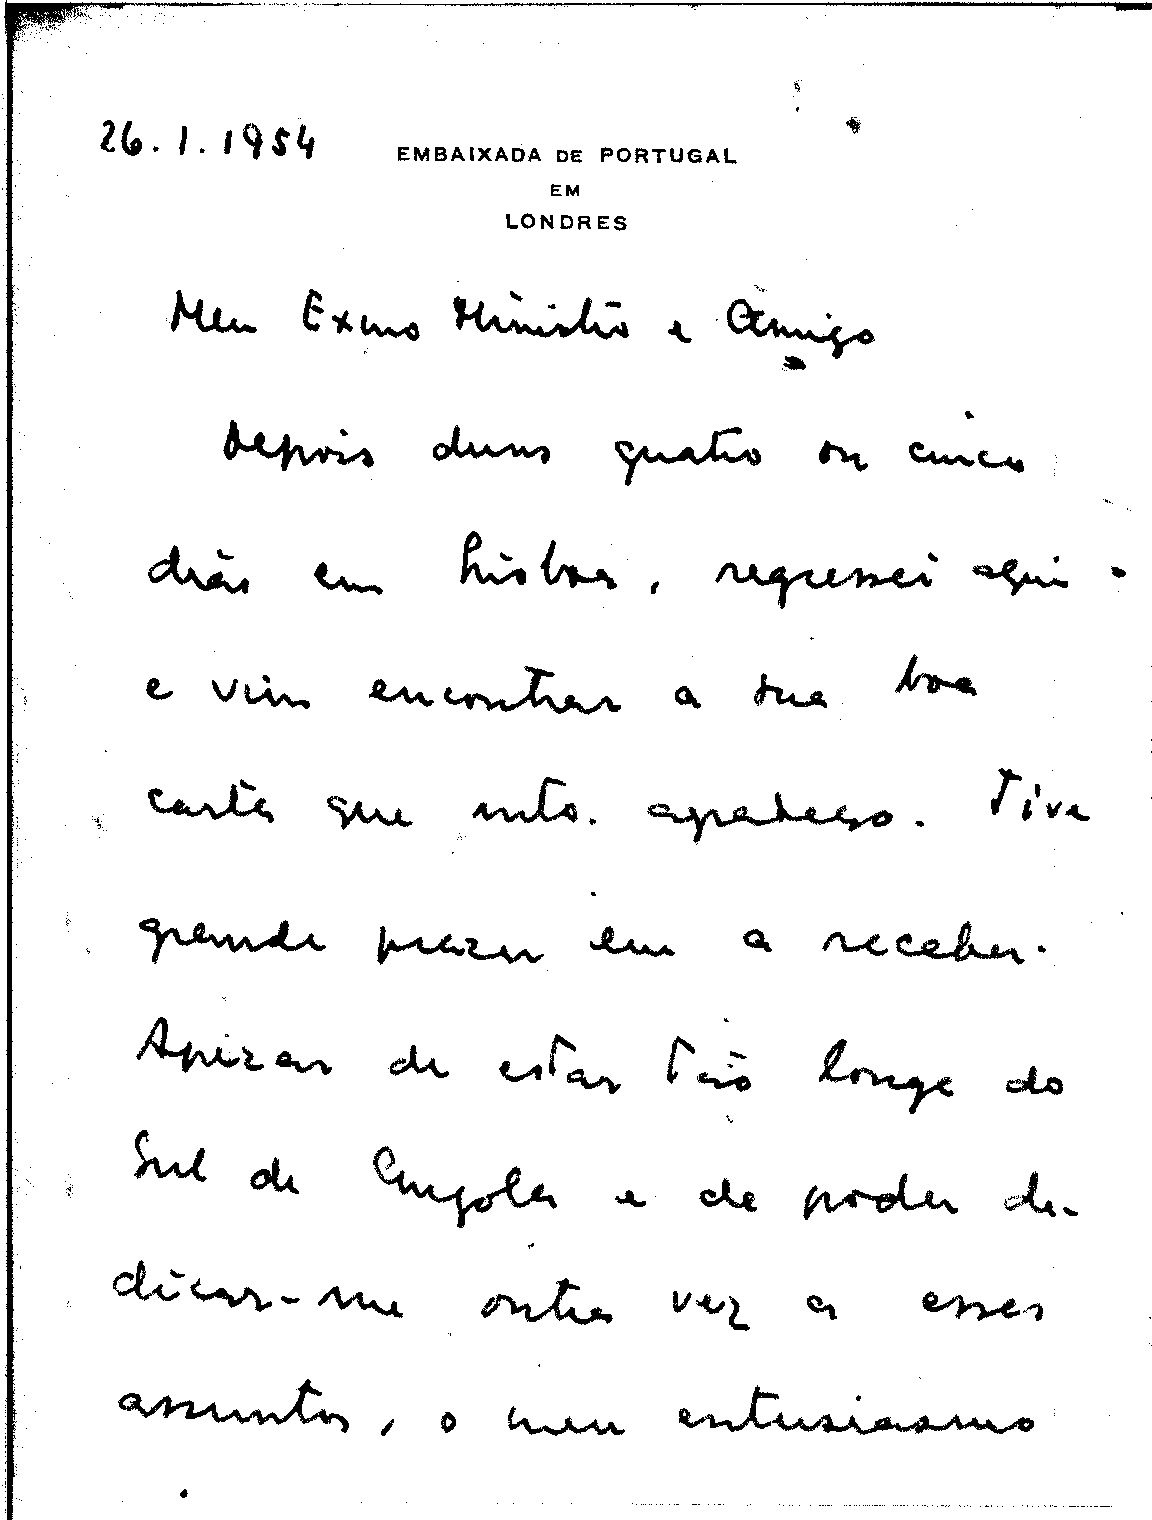 26.1.1954
EMBAIXADA DE PORTUGAL
EM
LONDRES
Meu Exmo Ministro e Amigo
Depois duns quatro ou cinco
dias em Lisboa, regressei aqui
e vim encontrar a sua boa
carta que mto. agradeço. Tive
grande prazer em a receber.
Apezar de estar tão longe do
Sul de Angola e de poder de-
dicar-me outra vez a esses
assuntos, o meu entusiasmo